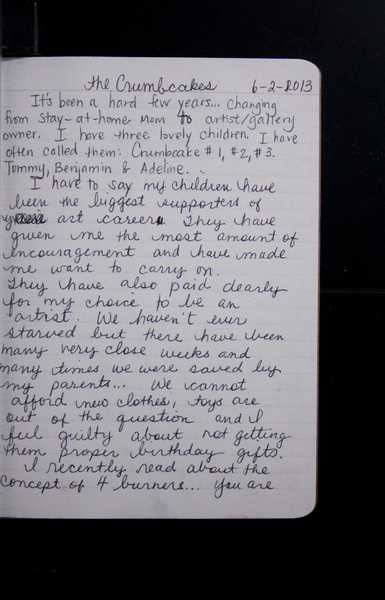 the Crumbcakes 6-2-2013
It's been a hard few years... changing
from stay-at-home mom to artist/gallery
owner. I have three lovely children. I have
often called them: Crumbcake #1, #2, #3.
Tommy, Benjamin & Adeline.
I have to say my children have
been the biggest supporters of
my art career. They have
given me the most amount of
encouragement and have made
me want to carry on.
They have also paid dearly
for my choice to be an
artist. We haven't ever
starved but there have been
many very close weeks and
many times we were saved by
my parents... We cannot
afford new clothes, toys are
out of the question and I
feel guilty about not getting
them proper birthday gifts.
I recently read about the
concept of 4 burners... you are